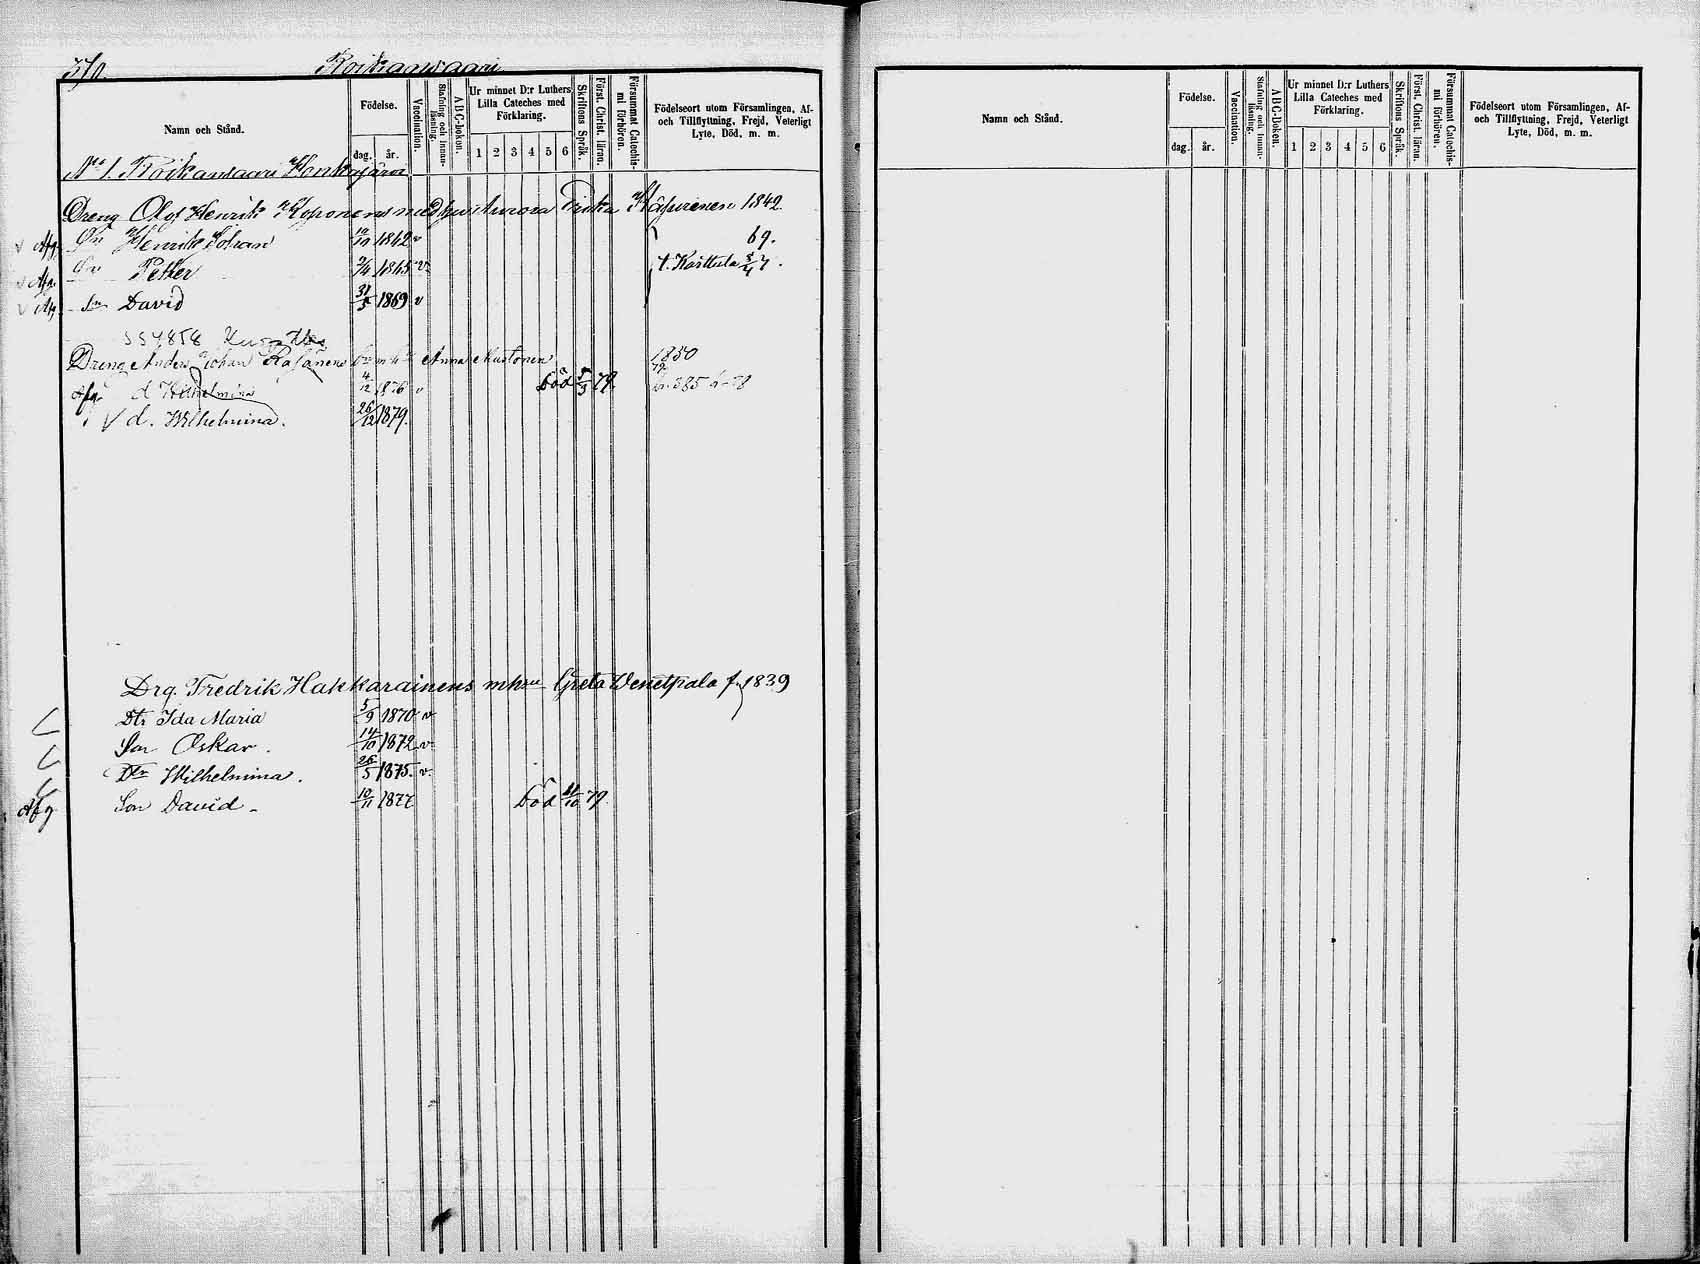 Roikansaari
Namn och Stånd.
Födelse.
dag. år.
Vaccination.
Stafning och innan-läsning.
ABC-boken.
Ur minnet D:r Luthers Lilla Cateches med Förklaring.
1 2 3 4 5 6
Skriftens Språk.
Först. Christ. läran.
Försummat Catechis-mi förhören.
Födelseort utom Församlingen, Af-
och Tillflyttning, Frejd, Veterligt
Lyte, Död, m. m.
No 1. Roikansaari
Dreng Olof Henrik Koponens med hu Aurora 1842
Afg. Sn Henrik Johan 10/10 1842 v 69.
Afg. Sn Petter 2/4 1865 v t. Karttula
v Afg. Sn David 31/5 1869 v
Dreng Anders Johan Räsänens Anna Mustonen 1850
Afg. d Wilhelmina 4/12 1876 v död 5/3 79.
V d. Wilhelmina. 26/12 1879.
Drg. Fredrik Hakkarainens mhru Greta Wenetpalo f. 1839
Dtr Ida Maria 5/9 1870 v
Son Oskar. 14/10 1872 v
Dtr Wilhelmina. 26/5 1875. v.
Afg Son David 10/11 1877 död 11/10 79.
Namn och Stånd.
Födelse.
dag. år.
Vaccination.
Stafning och innan-läsning.
ABC-Boken.
Ur minnet D:r Luthers Lilla Cateches med Förklaring.
1 2 3 4 5 6
Skriftens Språk.
Först. Christ. läran.
Försummat Catechis-mi förhören.
Födelseort utom Församlingen, Af-
och Tillflyttning, Frejd, Veterligt
Lyte, Död, m. m.